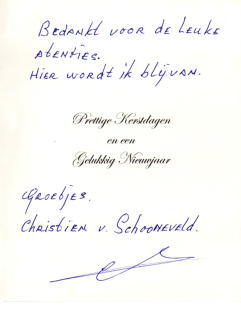 Bedankt voor de leuke
atenties.
Hier wordt ik blij van.
Prettige Kerstdagen
en een
Gelukkig Nieuwjaar
Groetjes.
Christien v. Schooneveld.